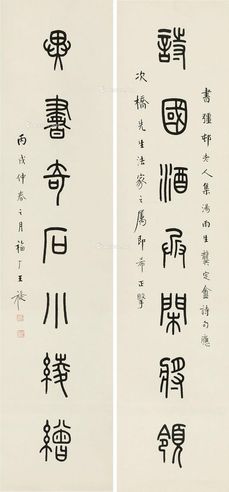 書彊邨老人集馮雨生龔定盦詩句應
詩國酒兵閑將領
次橋先生法家之屬即希正擘
異書奇石小綾繒
丙戌仲春之月福厂王禔